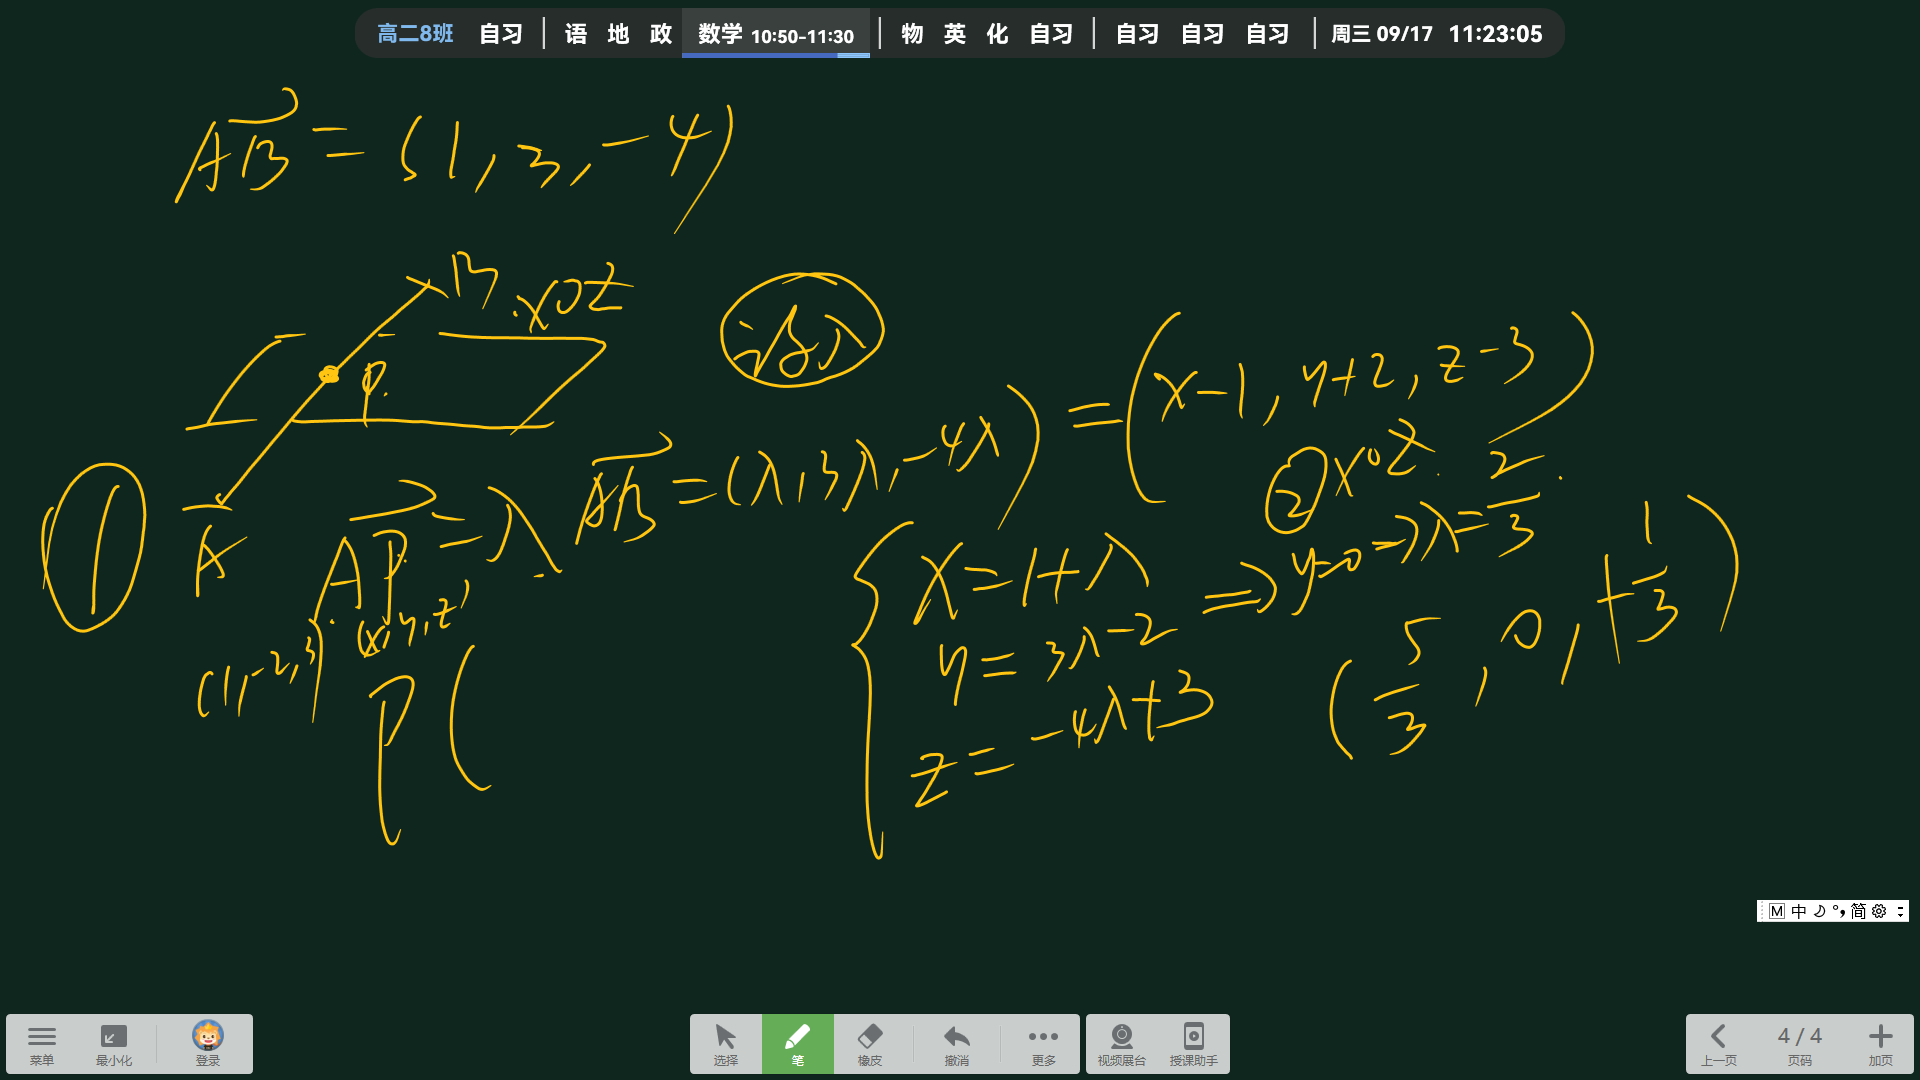 高二8班 自习 | 语 地 政 数学 10:50-11:30 | 物 英 化 自习 | 自习 自习 自习 | 周三 09/17 11:23:05
AB = (1, 3, -4)
B xOz
P.
设λ
A
① AP = λ·AB = (λ, 3λ, -4λ) = (x-1, y+2, z-3)
(1, -2, 3) (x, y, z)
P(
{ x = 1+λ
y = 3λ-2
z = -4λ+3
⇒ y=0 → λ = 2/3.
② xOz.
(5/3, 0, +1/3)
M 中 简
菜单 最小化 登录 选择 笔 橡皮 撤消 更多 视频展台 授课助手 上一页 4 / 4 页码 加页